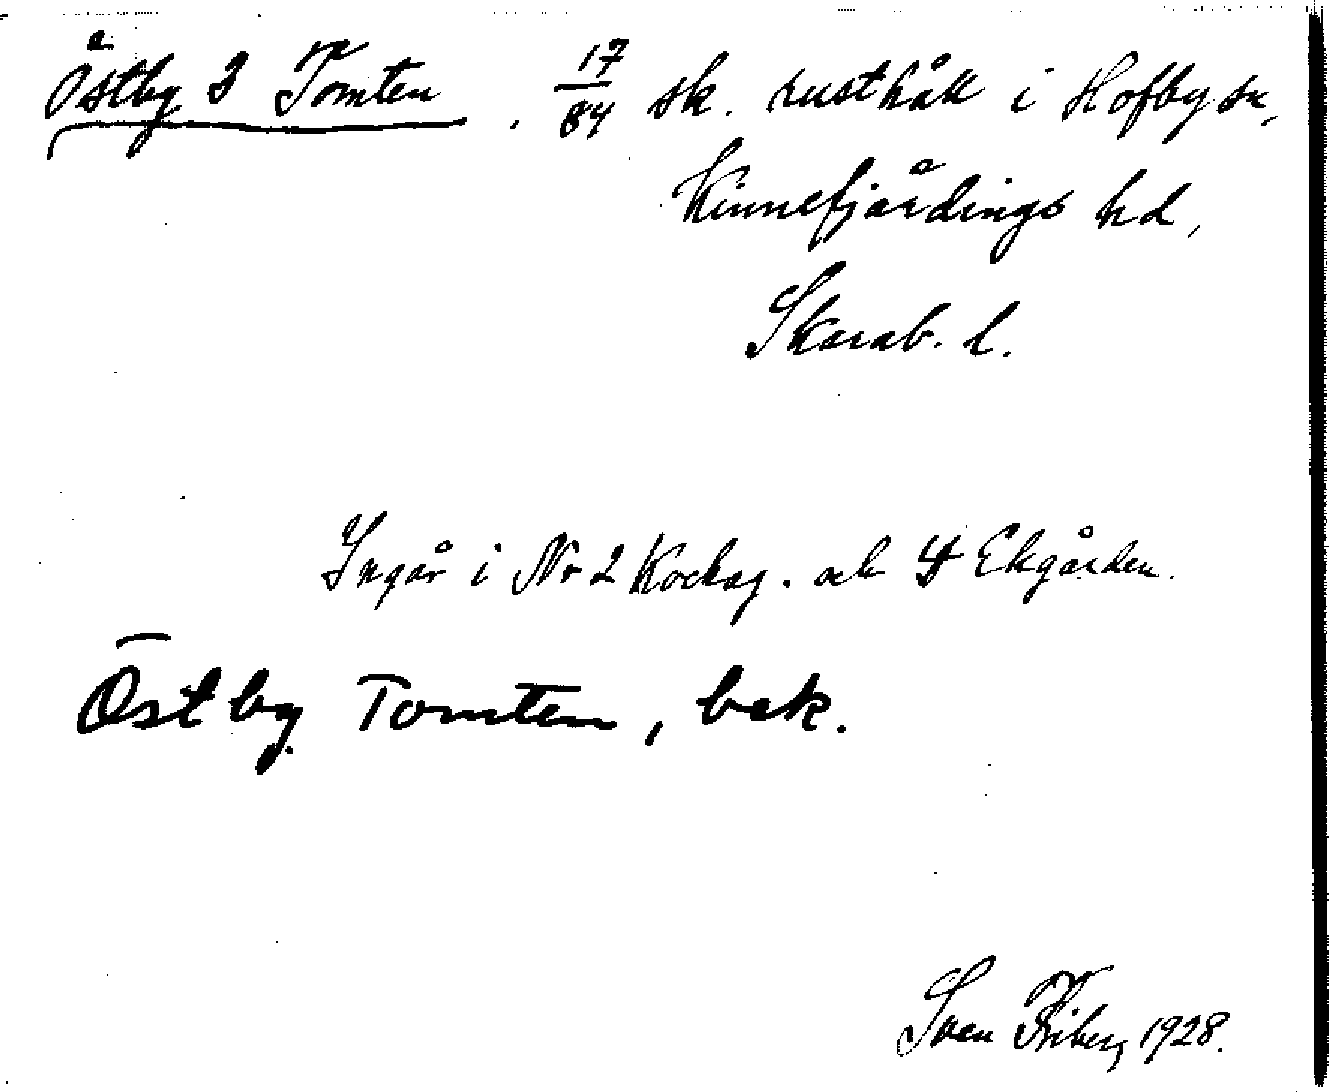 Östby 3 Tomten. 17/84 sk. rusthåll i Hofby sn,
Kinnefjärdings hd,
Skarab. l.
Ingår i Nr 2 Kockag. och 4 Ekgården.
Östby Tomten, bek.
Sven Friberg 1928.